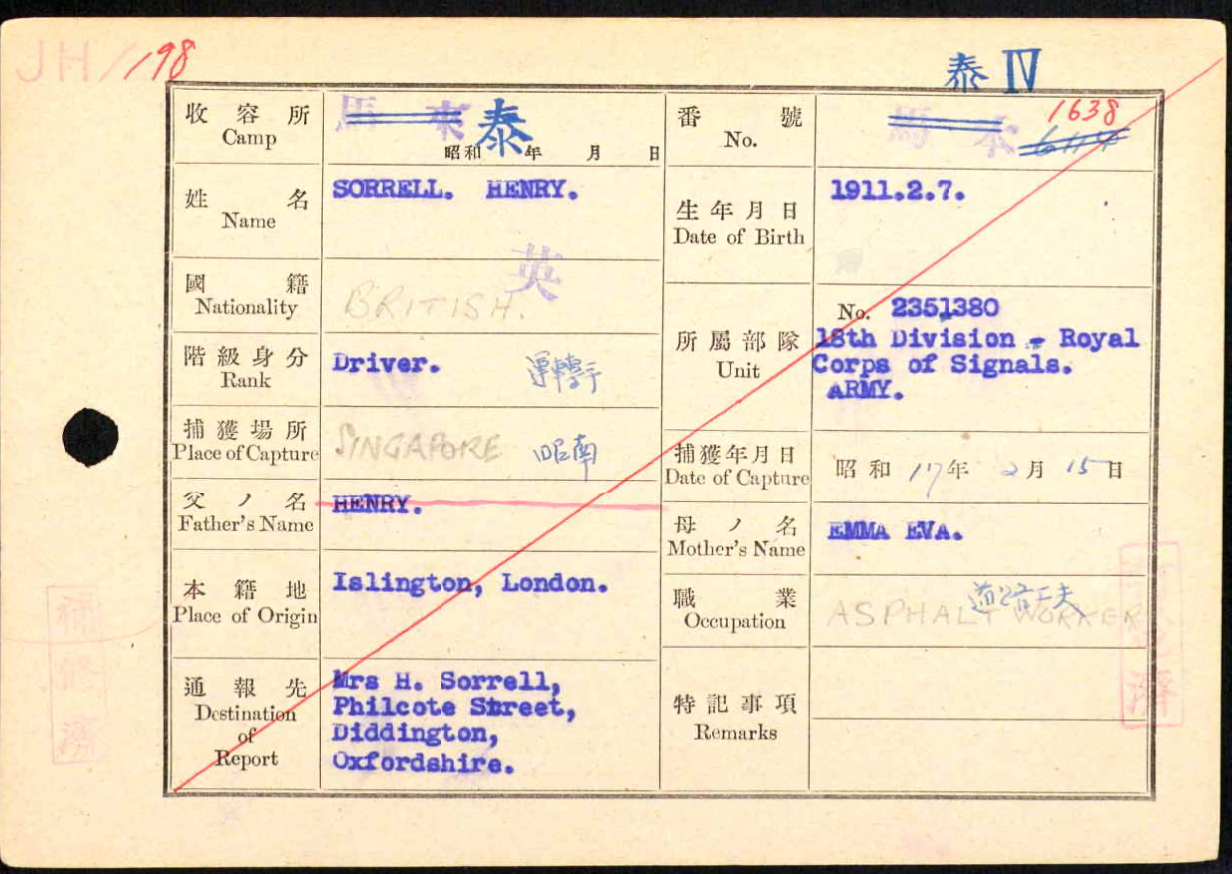 198
泰 IV
收容所
Camp
馬來 泰
昭和 年 月 日
番號
No.
馬本 1638
姓名
Name
SORRELL. HENRY.
生年月日
Date of Birth
1911.2.7.
國籍
Nationality
BRITISH.
英
階級身分
Rank
Driver. 運轉手
所屬部隊
Unit
No. 2351380
18th Division - Royal
Corps of Signals.
ARMY.
捕獲場所
Place of Capture
SINGAPORE 昭南
捕獲年月日
Date of Capture
昭和 17年 2月 15日
父ノ名
Father's Name
HENRY.
母ノ名
Mother's Name
EMMA EVA.
本籍地
Place of Origin
Islington, London.
職業
Occupation
ASPHALT WORKER
通報先
Destination
of
Report
Mrs H. Sorrell,
Philcote Street,
Diddington,
Oxfordshire.
特記事項
Remarks
補修濟